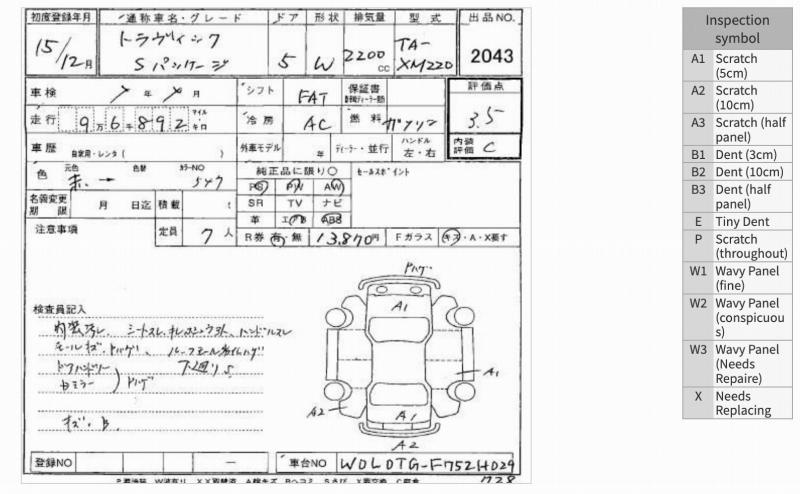 初度登録年月 通称車名・グレード ドア 形状 排気量 型式 出品NO.
15/12月 トラヴィック Sパッケージ 5 W 2200cc TA-XM220 2043
車検 年 月 シフト FAT 保証書 評価点
走行 9万6千892 マイル キロ 冷房 AC 燃料 ガソリン 3.5
車歴 自家用・レンタ( 外車モデル 年 ディーラー・並行 ハンドル 左・右 内装評価 C
色 元色 赤 → 色替 カラーNO 547 純正品に限り〇 セールスポイント
PS PW AW
名義変更期限 月 日迄 積載 t SR TV ナビ
革 エアB ABS
注意事項 定員 7人 R券 有・無 13,870円 Fガラス キズ・A・X要す
トハゲ
A1
検査員記入
内装汚レ、シートスレ、
ドアハンドル
ドミラー トハゲ 下廻りS
キズ、B
A1
A2 A1
A2
登録NO 車台NO W0L0TG-F752H029
728
Inspection symbol
A1 Scratch (5cm)
A2 Scratch (10cm)
A3 Scratch (half panel)
B1 Dent (3cm)
B2 Dent (10cm)
B3 Dent (half panel)
E Tiny Dent
P Scratch (throughout)
W1 Wavy Panel (fine)
W2 Wavy Panel (conspicuous)
W3 Wavy Panel (Needs Repaire)
X Needs Replacing